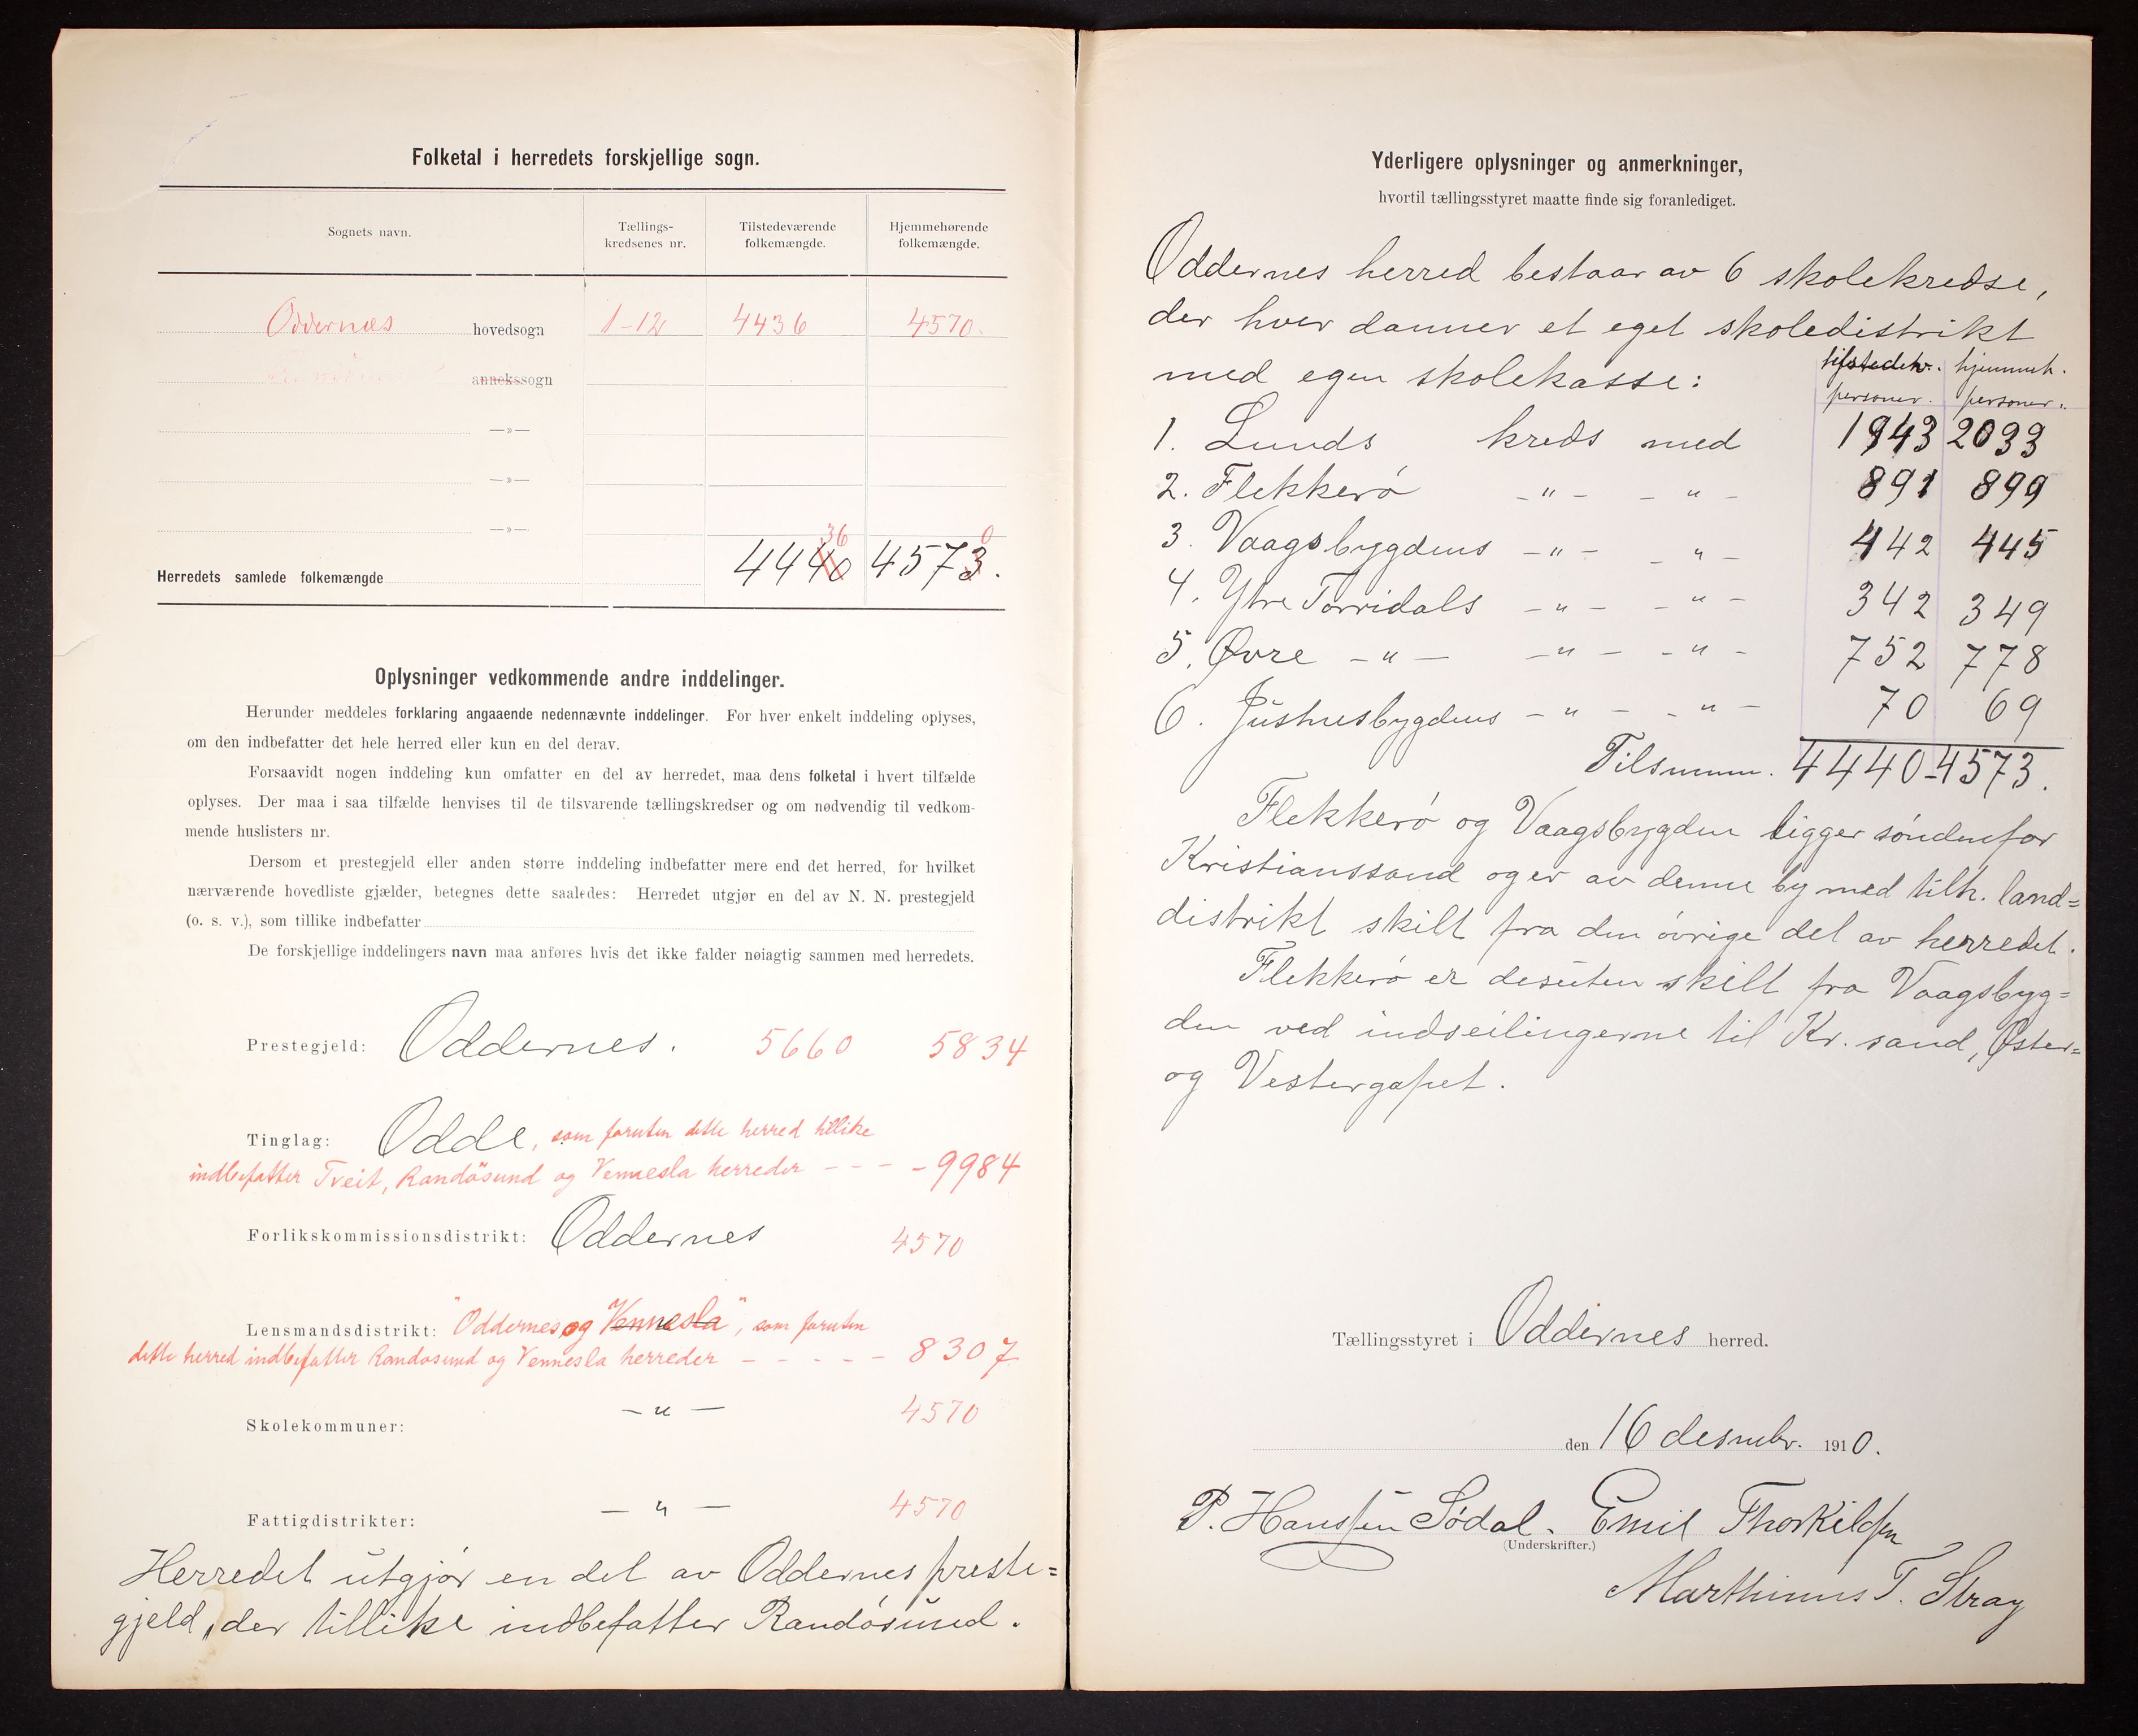 Folketal i herredets forskjellige sogn.
Sognets navn.
Tællings-
kredsenes nr.
Tilstedeværende
folkemængde.
Hjemmehørende
folkemængde.
Oddernes hovedsogn 1-12 4436 4570.
annekssogn
—»—
—»—
—»—
36 0
Herredets samlede folkemængde 4440 4573.
Oplysninger vedkommende andre inddelinger.
Herunder meddeles forklaring angaaende nedennævnte inddelinger. For hver enkelt inddeling oplyses,
om den indbefatter det hele herred eller kun en del derav.
Forsaavidt nogen inddeling kun omfatter en del av herredet, maa dens folketal i hvert tilfælde
oplyses. Der maa i saa tilfælde henvises til de tilsvarende tællingskredser og om nødvendig til vedkom-
mende huslisters nr.
Dersom et prestegjeld eller anden større inddeling indbefatter mere end det herred, for hvilket
nærværende hovedliste gjælder, betegnes dette saaledes: Herredet utgjør en del av N. N. prestegjeld
(o. s. v.), som tillike indbefatter
De forskjellige inddelingers navn maa anføres hvis det ikke falder nøiagtig sammen med herredets.
Prestegjeld: Oddernes. 5660 5834
Tinglag: Odde, som foruten dette herred tillike
indbefatter Tveit, Randösund og Vennesla herreder - - - - 9984
Forlikskommissionsdistrikt: Oddernes 4570
Lensmandsdistrikt: "Oddernes og Vennesla", som foruten
dette herred indbefatter Randosund og Vennesla herreder - - - - - 8307
Skolekommuner: — „ — 4570
Fattigdistrikter: — „ — 4570
Herredet utgjør en del av Oddernes preste=
gjeld, der tillike indbefatter Randøsund.
Yderligere oplysninger og anmerkninger,
hvortil tællingsstyret maatte finde sig foranlediget.
Oddernes herred bestaar av 6 skolekredse,
der hver danner et eget skoledistrikt
med egen skolekasse:
tilstedev. hjemmeh.
personer. personer.
1. Lunds kreds med 1943 2033
2. Flekkerö -"- -"- 891 899
3. Vaagsbygdens -"- -"- 442 445
4. Ytre Torridals -"- -"- 342 349
5. Øvre -"- -"- -"- 752 778
6. Justnesbygdens -"- -"- 70 69
Tilsmmn. 4440 - 4573.
Flekkerö og Vaagsbygden ligger söndenfor
Kristianssand og er av denne by med tilh. land=
distrikt skilt fra den övrige del av herredet.
Flekkerö er desuten skilt fra Vaagsbyg=
den ved indseilingerne til Kr. sand, Øster=
og Vestergapet.
Tællingsstyret i Oddernes herred.
den 16 desembr. 1910.
P. Hanssen Sødal. Emil Thorkildsen
(Underskrifter.)
Marthinus T. Stray